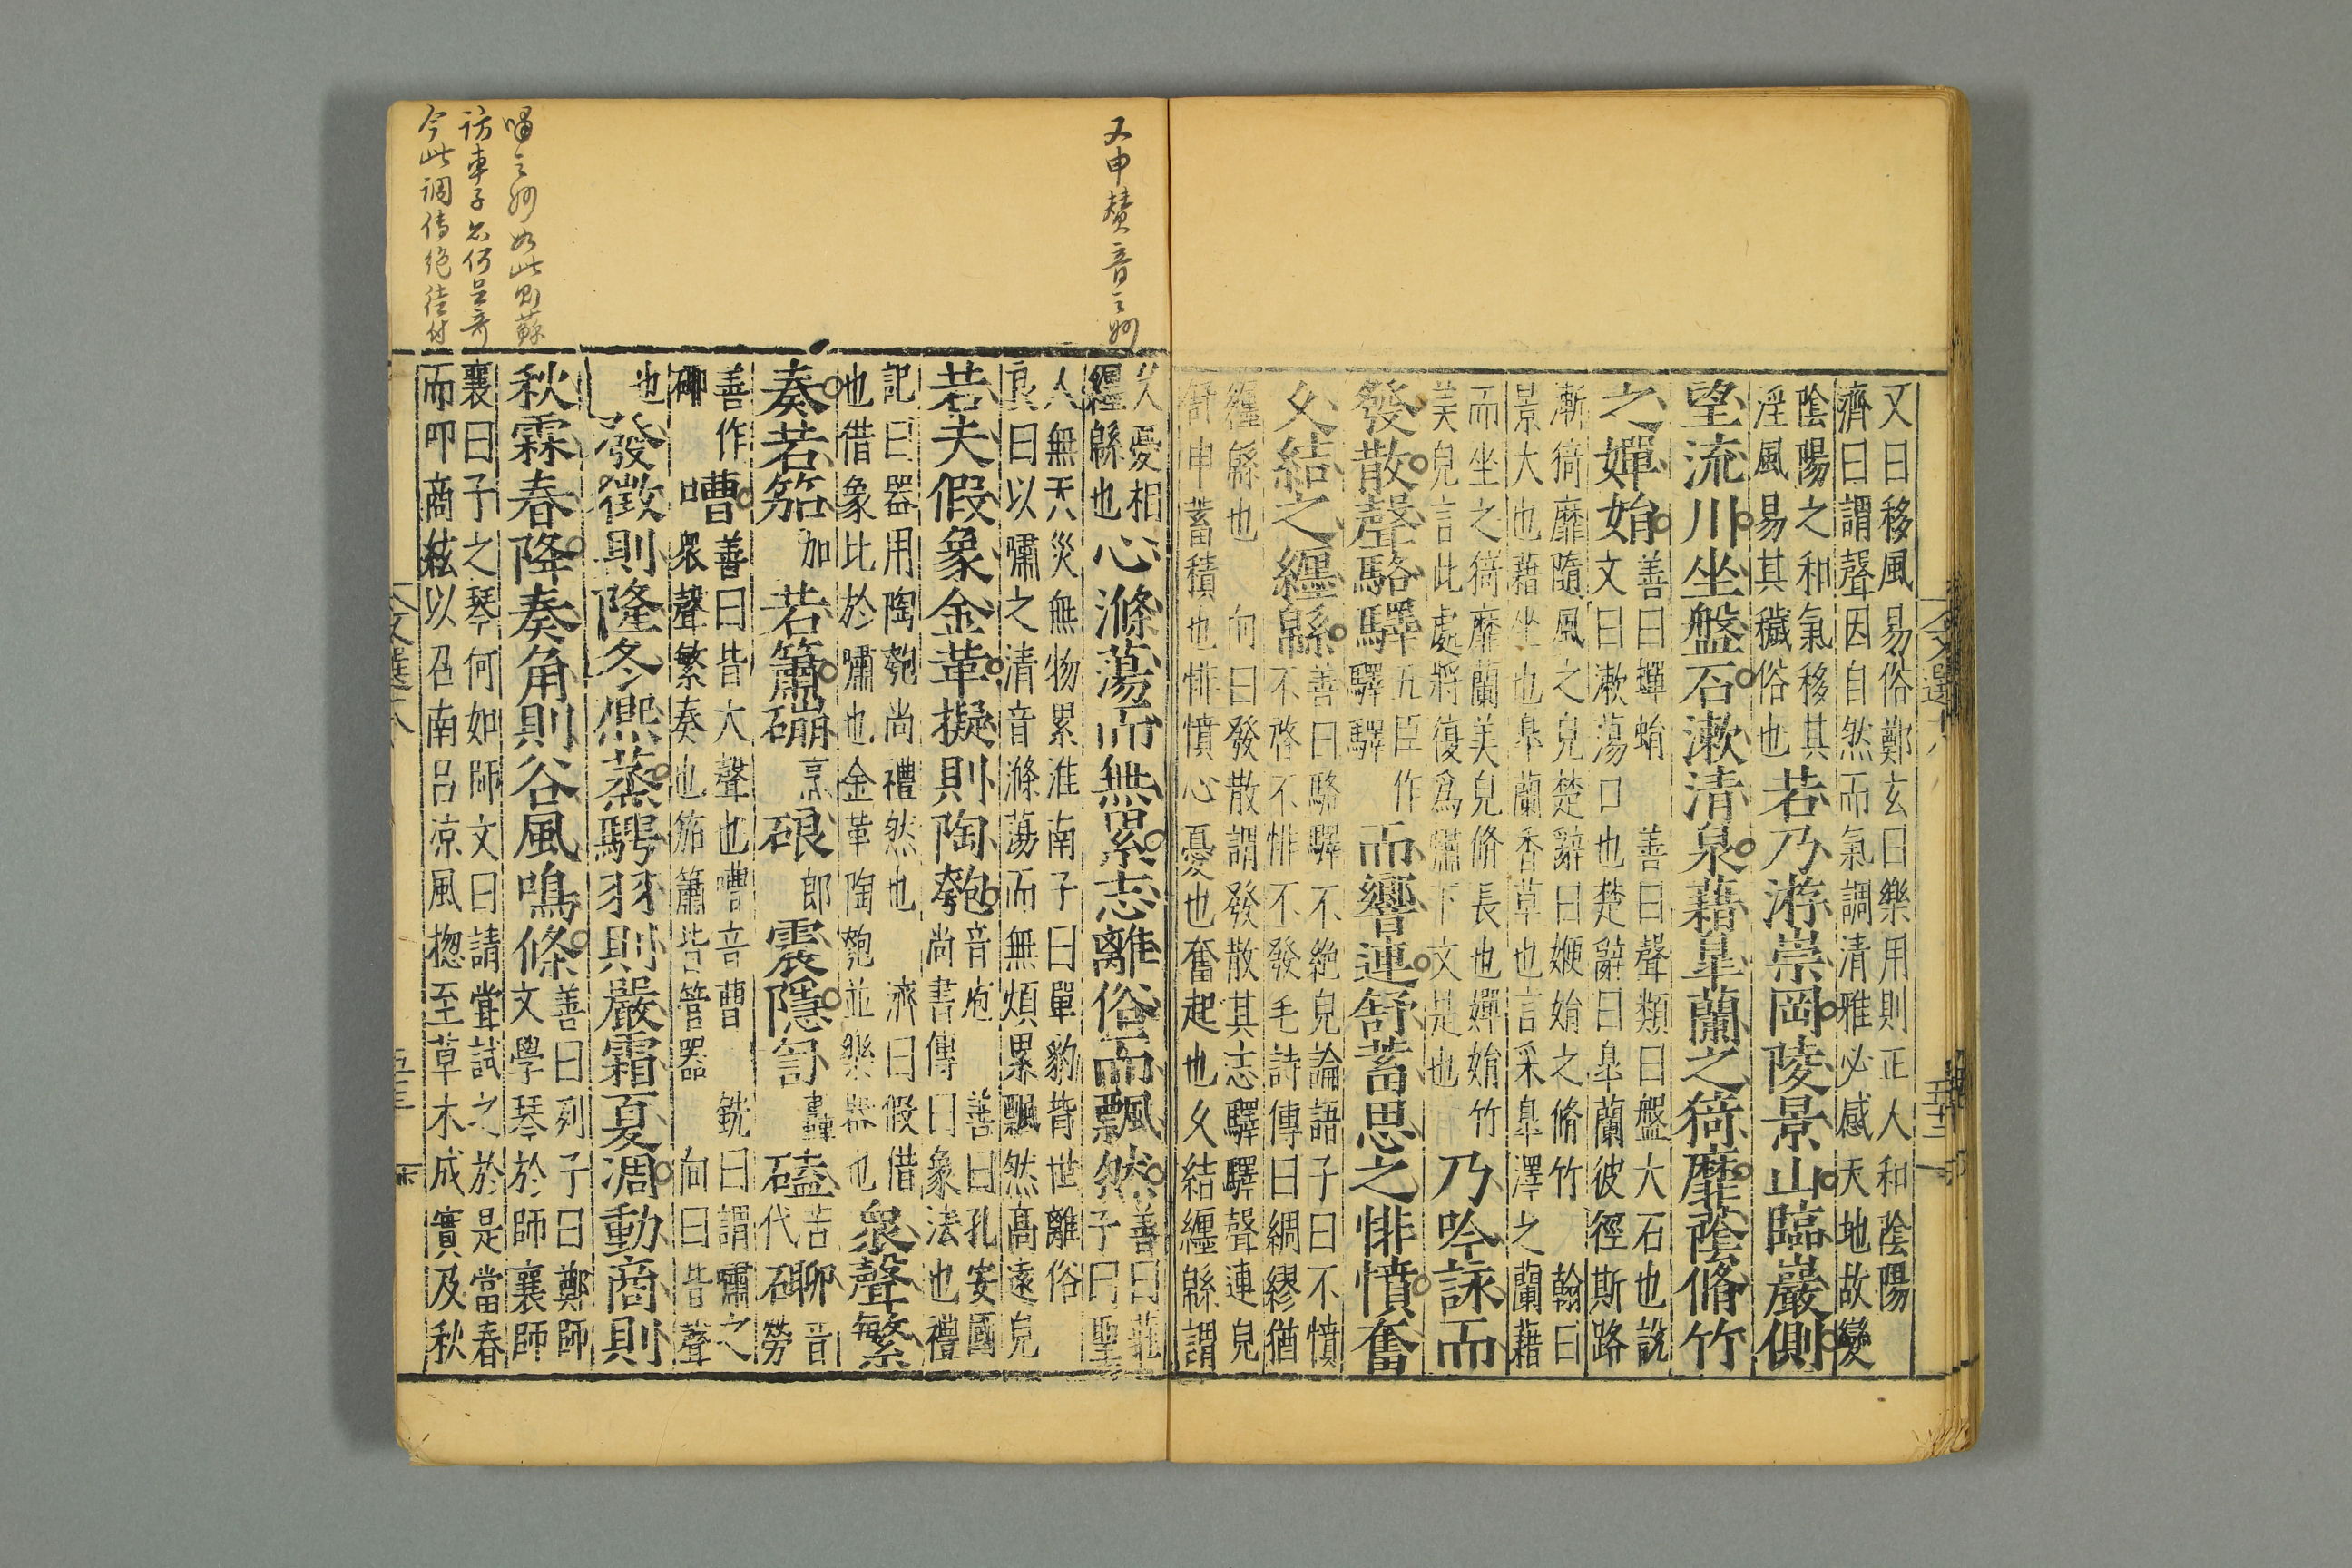 又曰移風易俗鄭玄曰樂用則正人和陰陽
濟曰謂聲因自然而氣調清雅必感天地故變
陰陽之和氣移其
淫風易其穢俗也
若乃游崇岡陵景山臨巖側
望流川坐盤石漱清泉藉皋蘭之猗靡蔭脩竹
之嬋娟
善曰蟬蜎 善曰聲類曰盤大石也說
文曰漱蕩口也楚辭曰皋蘭彼徑斯路
漸猗靡隨風之皃楚辭曰㛹娟之脩竹 翰曰
景大也藉坐也皋蘭香草也言采皋澤之蘭藉
而坐之猗靡蘭美皃脩長也嬋娟竹
美皃言此處將復爲嘯下文是也
乃吟詠而
發散聲駱驛
五臣作
驛驛
而響連舒蓄思之悱憤奮
久結之纏緜
善曰駱驛不絶皃論語子曰不憤
不啓不悱不發毛詩傳曰綢繆猶
纏緜也 向曰發散謂發散其志驛驛聲連皃
舒申蓄積也悱憤心憂也奮起也久結纏緜謂
文選十八
又申贊音之妙
久憂相
纏緜也
心滌蕩而無累志離俗而飄然
善曰莊
子曰聖
人無天災無物累淮南子曰單豹背世離俗
良曰以嘯之清音滌蕩而無煩累飄然高遠皃
若夫假象金革擬則陶匏
音庖 善曰孔安國
尚書傳曰象法也禮
記曰器用陶匏尚禮然也 濟曰假借
也借象比於嘯也金革陶匏並樂器也
衆聲繁
奏若笳加若簫磞烹硠郎震隱訇轟磕苦代
音
勞
善作
嘈
善曰皆大聲也嘈音曹 銑曰謂嘯之
衆聲繁奏也笳簫皆管器 向曰皆聲
也
發徵則隆冬熙蒸騁羽則嚴霜夏凋動商則
秋霖春降奏角則谷風鳴條
善曰列子曰鄭師
文學琴於師襄師
襄曰子之琴何如師文曰請嘗試之於是當春
而叩商絃以召南呂凉風惚至草木成實及秋
嘯之妙如此則蘇
訪車子亦何足奇
今此調傳絕徒付